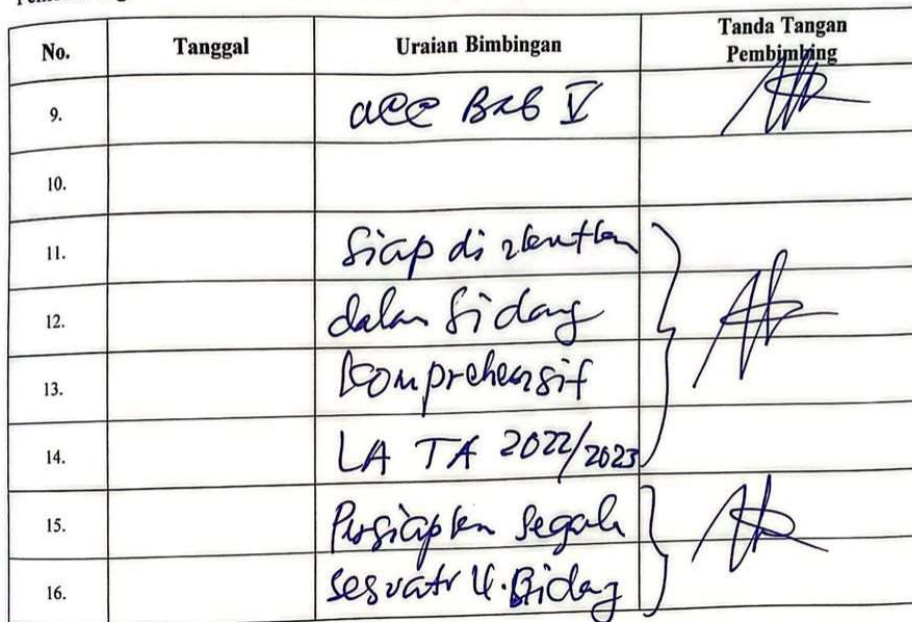 No. Tanggal Uraian Bimbingan Tanda Tangan Pembimbing
9. acc Bab V
10.
11. Siap di
12. dalam Sidang
13. Komprehensif
14. LA TA 2022/2023
15. Persiapkan segala
16. sesuatu U. Sidang